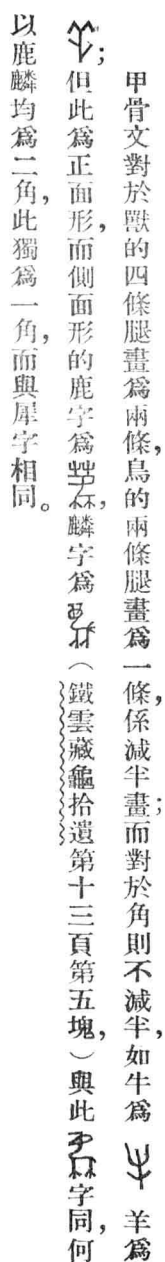 甲骨文對於獸的四條腿畫爲兩條，鳥的兩條腿畫爲一條，係減半畫；而對於角則不減半，如牛爲 羊爲
；但此爲正面形，而側面形的鹿字爲 ，麟字爲 （鐵雲藏龜拾遺第十三頁第五塊，）與此 字同，何
以鹿麟均爲二角，此獨爲一角，而與犀字相同。